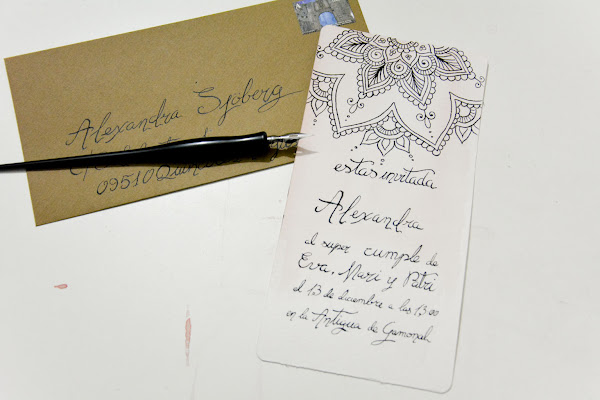 Alexandra Sjöberg
09510 Quin
estas invitada
Alexandra
al super cumple de
Eva, Mari y Patri
el 13 de diciembre a las 13:00
en la Antigua de Gamonal